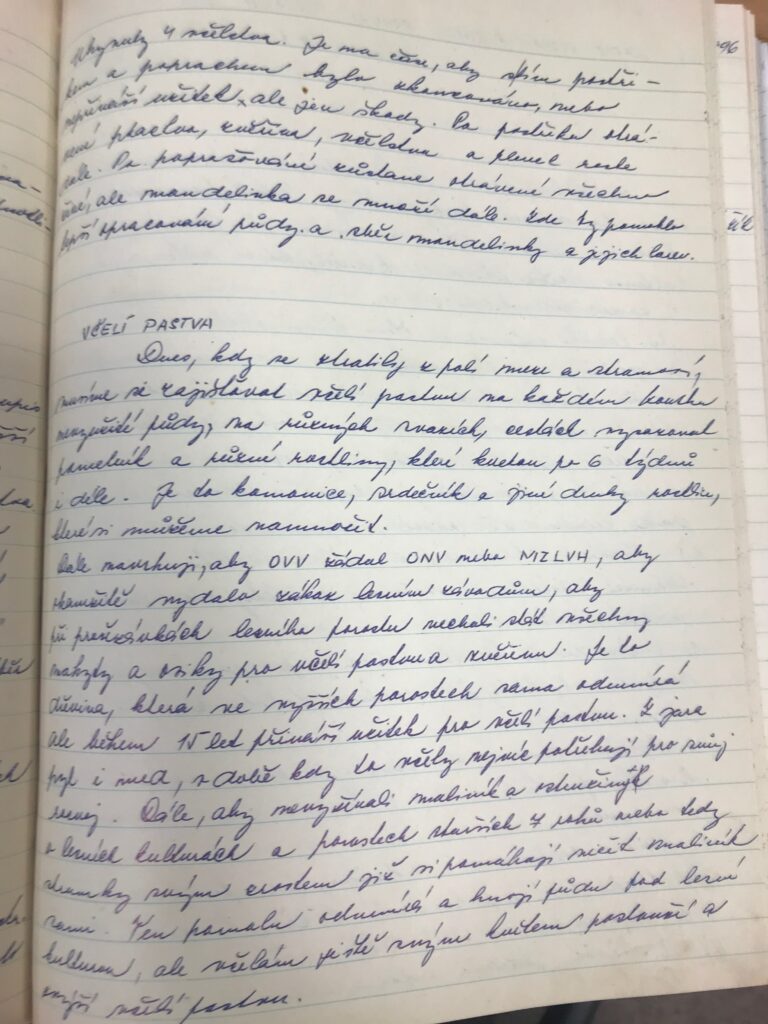 uhynuly 4 včelstva. Je na čase, aby s tím postři-
kem a poprachem bylo skoncováno, nebo
nepřináší užitek, ale jen škody. Po postřiku otrá-
vení ptactvo, zvěřina, včelstva a plevel roste
dále. Po poprašování zůstane otrávené všechno
ale mandelinka se množí dále. Zde by pomohlo
lepší zpracování půdy a sběr mandelinky a jejich larev.
VČELÍ PASTVA
Dnes, kdy se ztratily z polí meze a stromoví,
musíme si zajišťovat včelí pastvu na každém kousku
nevyužité půdy, na různých svazích, cestách vysazovat
pamelník a různé rostliny, které kvetou po 6 týdnů
i déle. Je to komonice, srdečník a jiné druhy rostlin,
které si můžeme namnožit.
Dále navrhuji, aby OVV žádal ONV nebo MZLVH, aby
okamžitě vydalo zákaz lesním závodům, aby
při prořezávkách lesního porostu nechali stát všechny
a osiky pro včelí pastvu a zvěřinu. Je to
dřevina, která ve vyšších porostech sama odumírá
ale během 15 let přináší užitek pro včelí pastvu. Z jara
pyl i med, v době kdy to včely nejvíc potřebují pro svůj
rozvoj. Dále, aby nevyžínali maliník a ostružiník
v lesních kulturách a porostech starších 4 roků nebo tedy
stromky svým vzrostem již si pomáhají ničit maliník
sami. Ten pomalu odumírá a hnojí půdu pod lesní
kulturou, ale včelám ještě svým květem poslouží a
zvýší včelí pastvu.